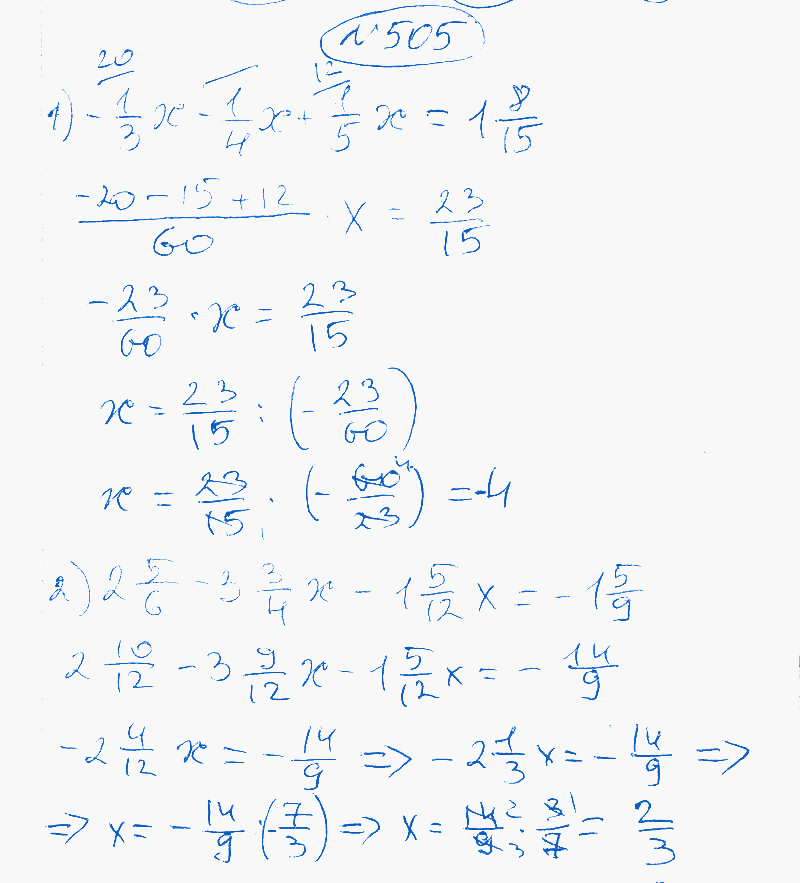 №505
1) -1/3 x - 1/4 x + 1/5 x = 1 8/15
(-20 - 15 + 12)/60 · x = 23/15
-23/60 · x = 23/15
x = 23/15 : (-23/60)
x = 23/15 · (-60/23) = -4
2) 2 5/6 - 3 3/4 x - 1 5/12 x = -1 5/9
2 10/12 - 3 9/12 x - 1 5/12 x = -14/9
-2 4/12 x = -14/9 => -2 1/3 x = -14/9 =>
=> x = -14/9 : (-7/3) => x = 14/9 · 3/7 = 2/3